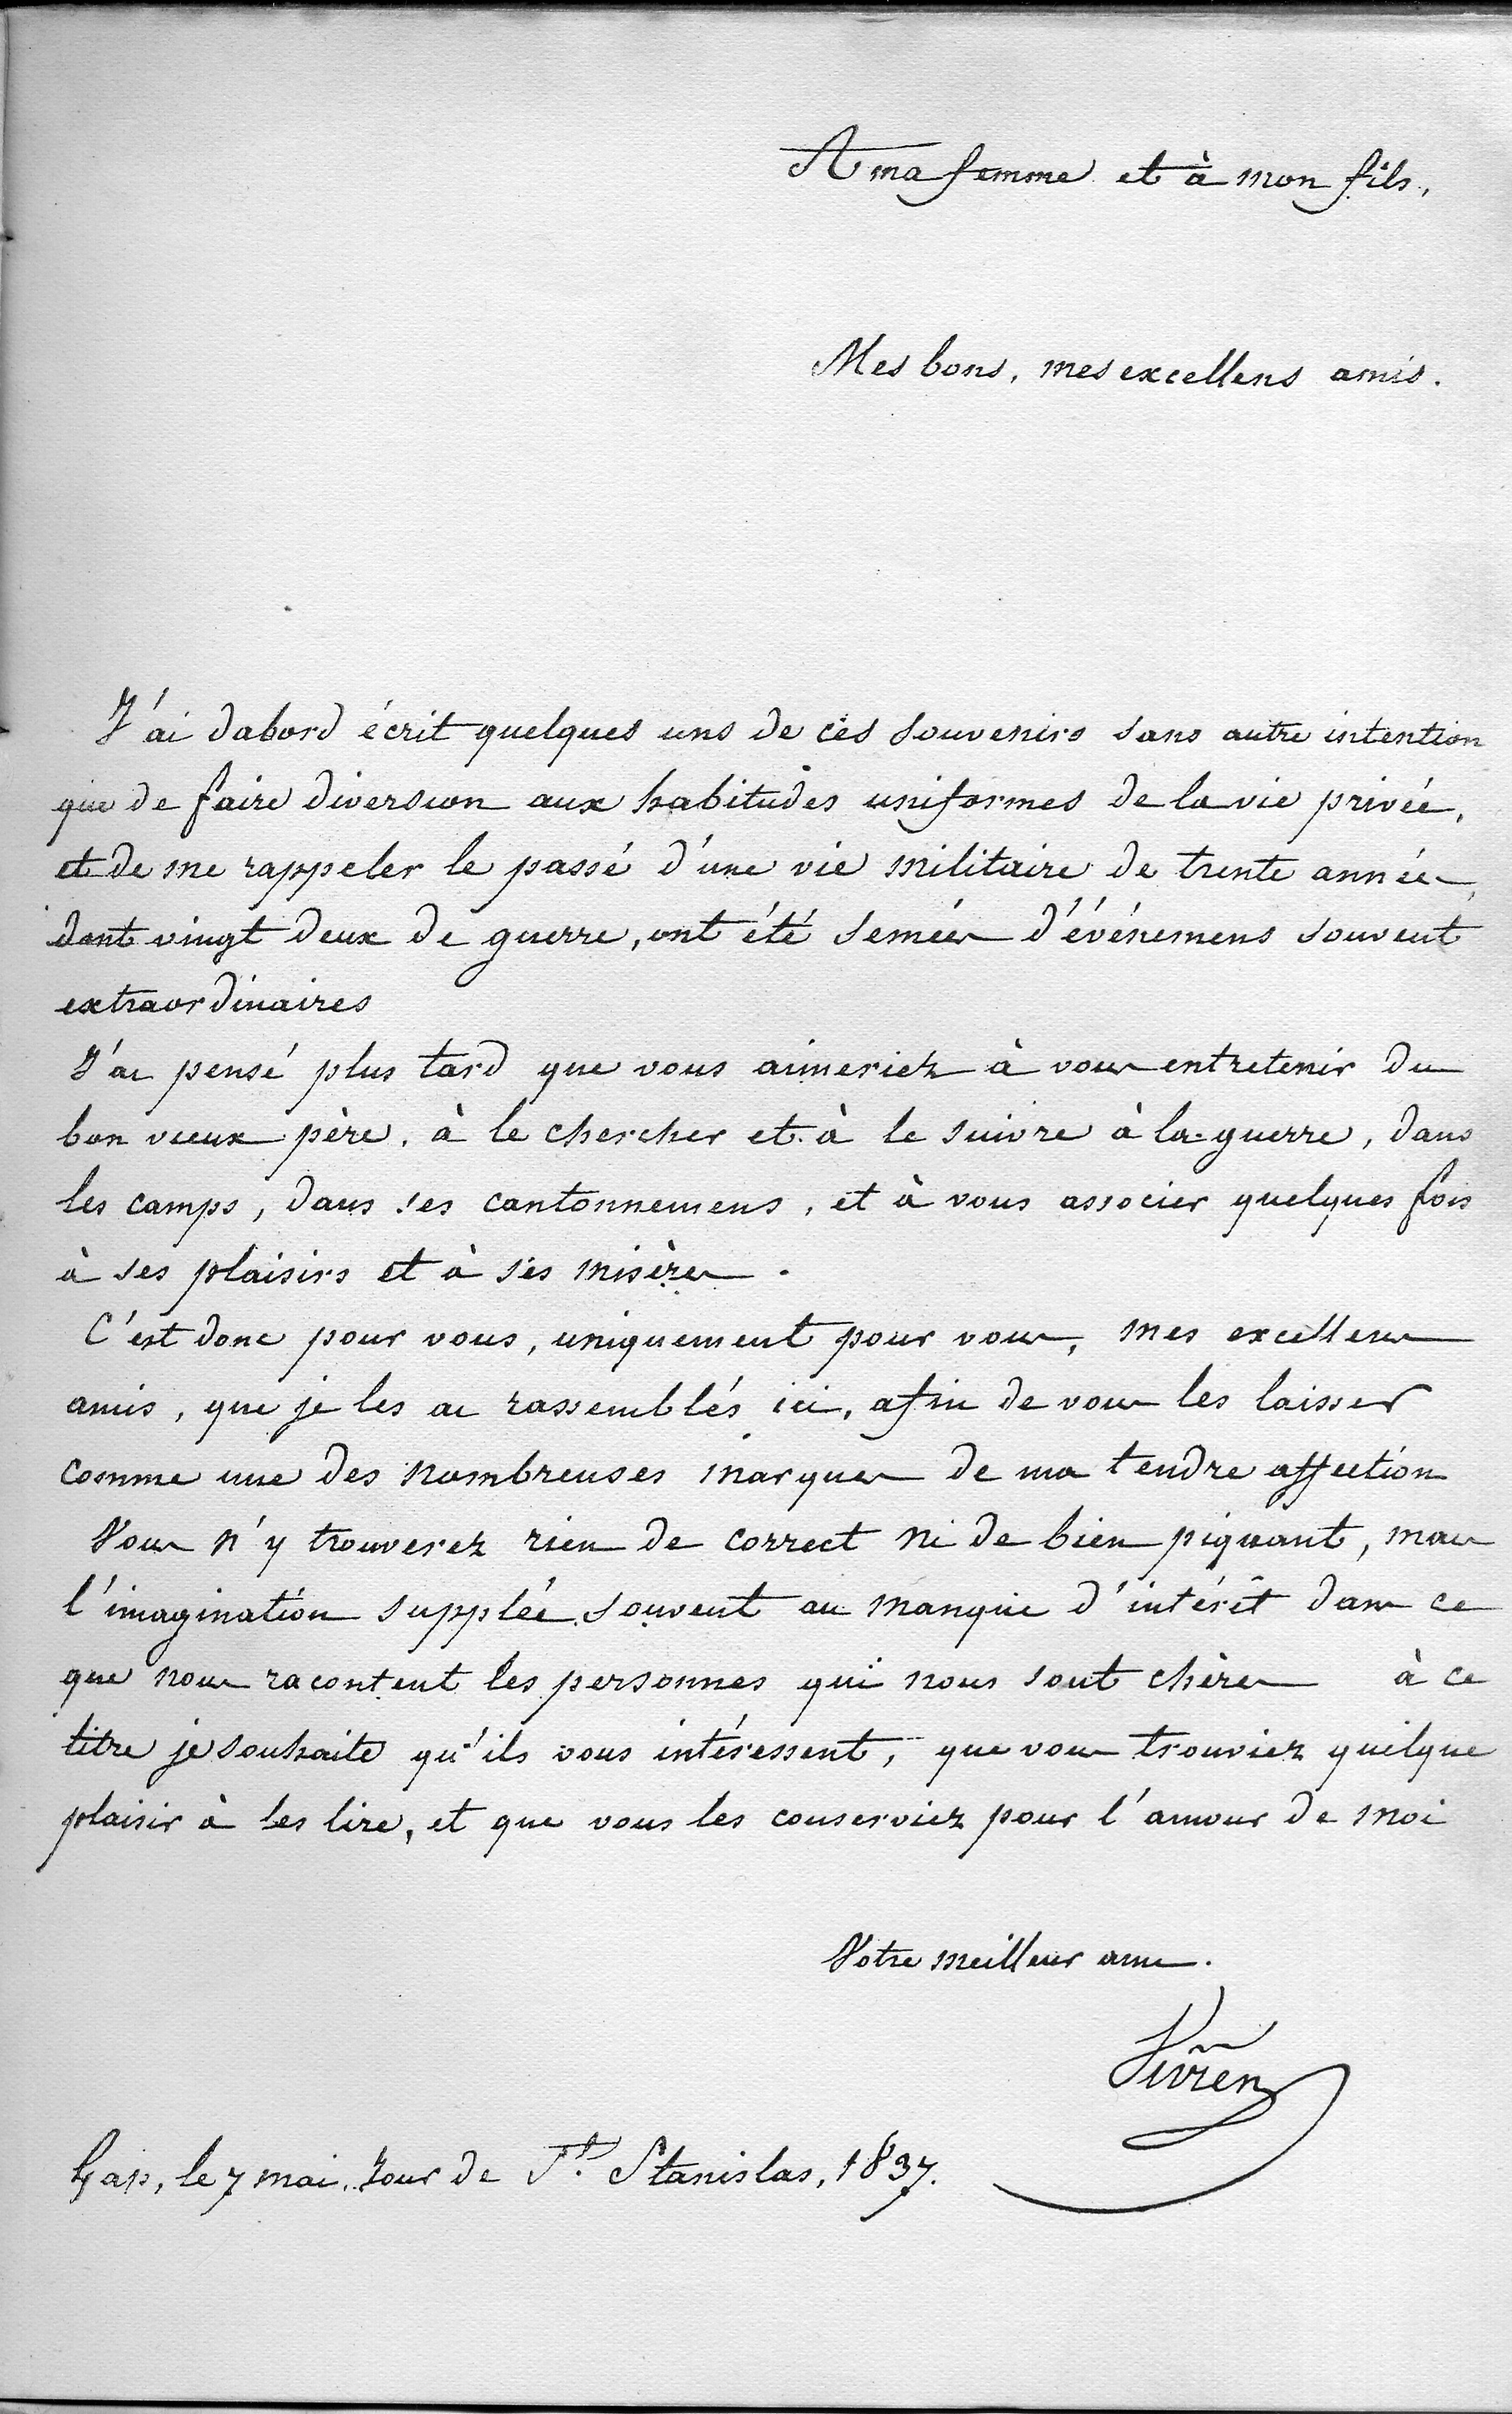 A ma femme et à mon fils,
Mes bons, mes excellens amis.
J'ai dabord écrit quelques uns de ces souvenirs sans autre intention
que de faire diversion aux habitudes uniformes de la vie privée,
et de me rappeler le passé d'une vie militaire de trente années,
dont vingt deux de guerre, ont été semées d'événemens souvent
extraordinaires
J'ai pensé plus tard que vous aimeriez à vous entretenir du
bon vieux père, à le chercher et à le suivre à la guerre, dans
les camps, dans ses cantonnemens, et à vous associer quelques fois
à ses plaisirs et à ses misères.
C'est donc pour vous, uniquement pour vous, mes excellens
amis, que je les ai rassemblés ici, afin de vous les laisser
comme une des nombreuses marques de ma tendre affection
Vous n'y trouverez rien de correct ni de bien piquant, mais
l'imagination supplée souvent au manque d'intérêt dans ce
que nous racontent les personnes qui nous sont chères à ce
titre je souhaite qu'ils vous intéressent, que vous trouviez quelque
plaisir à les lire, et que vous les conserviez pour l'amour de moi
Votre meilleur ami.
Gap, le 7 mai, Jour de St. Stanislas, 1837.